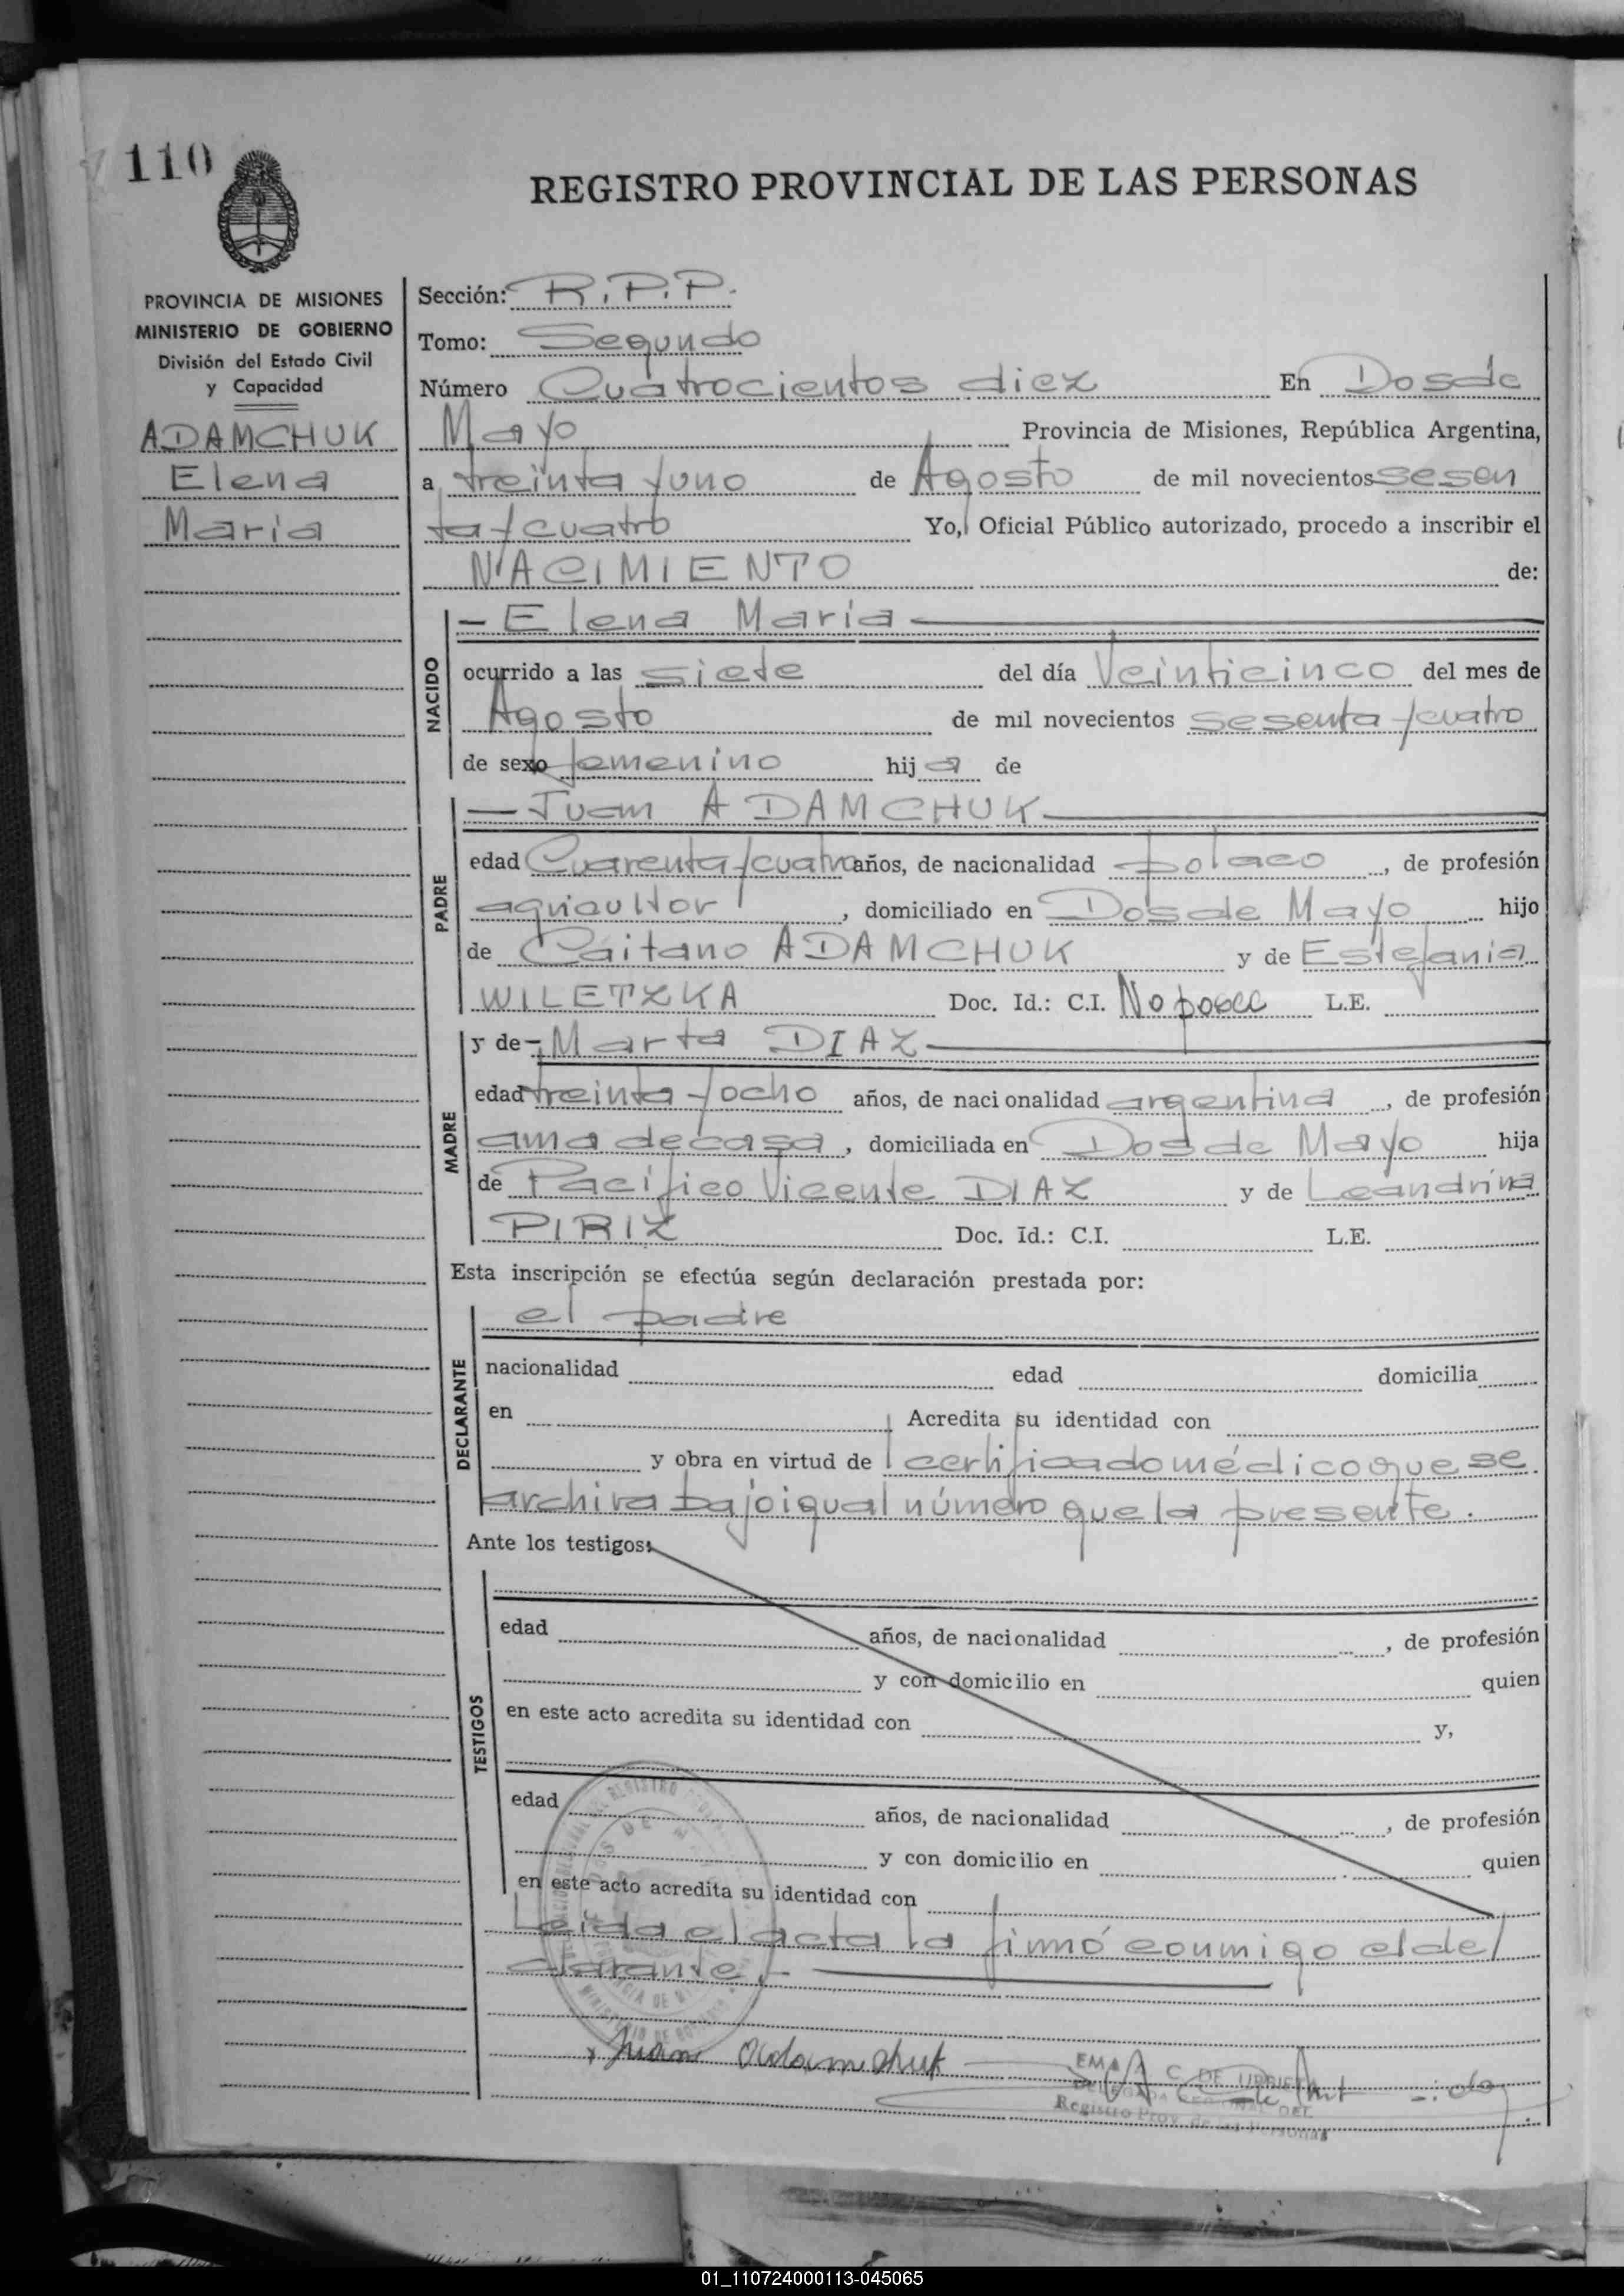 110
REGISTRO PROVINCIAL DE LAS PERSONAS
PROVINCIA DE MISIONES
MINISTERIO DE GOBIERNO
División del Estado Civil
y Capacidad
ADAMCHUK
Elena
Maria
Sección: R.P.P.
Tomo: Segundo
Número Cuatrocientos diez En Dos de
Mayo Provincia de Misiones, República Argentina,
a treinta y uno de Agosto de mil novecientos sesen
ta y cuatro Yo, Oficial Público autorizado, procedo a inscribir el
NACIMIENTO de:
NACIDO
- Elena Maria
ocurrido a las siete del día Veinticinco del mes de
Agosto de mil novecientos sesenta y cuatro
de sexo femenino hija de
PADRE
- Juan ADAMCHUK
edad Cuarenta y cuatro años, de nacionalidad polaco, de profesión
agricultor, domiciliado en Dos de Mayo hijo
de Caitano ADAMCHUK y de Estefania
WILETZKA Doc. Id.: C.I. No posee L.E.
MADRE
y de - Marta DIAZ
edad treinta y ocho años, de nacionalidad argentina, de profesión
ama de casa, domiciliada en Dos de Mayo hija
de Pacífico Vicente DIAZ y de Leandrina
PIRIZ Doc. Id.: C.I. L.E.
Esta inscripción se efectúa según declaración prestada por:
DECLARANTE
el padre
nacionalidad edad domicilia
en Acredita su identidad con
y obra en virtud de certificado médico que se
archiva bajo igual número que la presente.
Ante los testigos:
TESTIGOS
edad años, de nacionalidad , de profesión
y con domicilio en quien
en este acto acredita su identidad con y,
edad años, de nacionalidad , de profesión
y con domicilio en quien
en este acto acredita su identidad con
Leída el acta la firmó conmigo el del
clarante.-
Juan Adamchuk
EMA C. DE URRIETA
DELEGADA DEL
Registro Prov. de las Personas
01_110724000113-045065